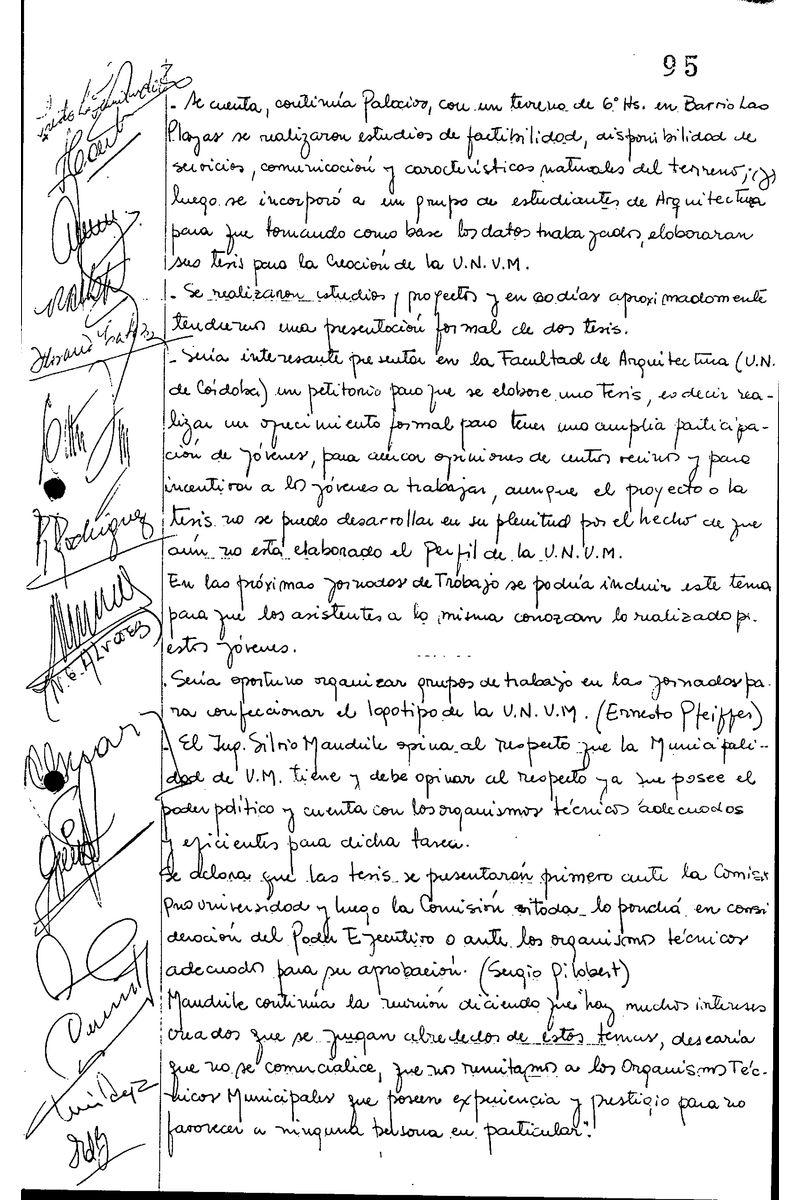 95
- Se cuenta, continúa Palacios, con un terreno de 6 Hs. en Barrio Las
Playas se realizaron estudios de factibilidad, disponibilidad de
servicios, comunicación y características naturales del terreno; (y)
luego se incorporó a un grupo de estudiantes de Arquitectura
para que tomando como base los datos trabajados, elaboraran
sus tesis para la Creación de la U.N.V.M.
- Se realizaron estudios, proyectos y en 20 días aproximadamente
tendremos una presentación formal de dos tesis.
- Sería interesante presentar en la Facultad de Arquitectura (U.N.
de Córdoba) un petitorio para que se elabore una Tesis, es decir rea-
lizar un ofrecimiento formal para tener una amplia participa-
ción de jóvenes, para acercar opiniones de centros vecinos y para
incentivar a los jóvenes a trabajar, aunque el proyecto o la
tesis no se pueda desarrollar en su plenitud por el hecho de que
aún no está elaborado el Perfil de la U.N.V.M.
En las próximas Jornadas de Trabajo se podría incluir este tema
para que los asistentes a la misma conozcan lo realizado p.
estos jóvenes.
. Sería oportuno organizar grupos de trabajo en las Jornadas pa-
ra confeccionar el logotipo de la U.N.V.M. (Ernesto Pfeiffer)
- El Ing. Silvio Mandrile opina al respecto que la Municipali-
dad de V.M. tiene y debe opinar al respecto ya que posee el
poder político y cuenta con los organismos técnicos adecuados
y eficientes para dicha tarea.
Se aclara que las tesis se presentarán primero ante la Comis.
Prouniversidad y luego la Comisión citada lo pondrá en consi
deración del Poder Ejecutivo o ante los organismos técnicos
adecuados para su aprobación. (Sergio Gilabert)
Mandrile continúa la reunión diciendo que hay muchos intereses
creados que se juegan alrededor de estos temas, desearía
que no se comercialice, que nos remitamos a los Organismos Téc-
nicos Municipales que poseen experiencia y prestigio para no
favorecer a ninguna persona en particular.
R Rodríguez
(N.G. Alvarez)